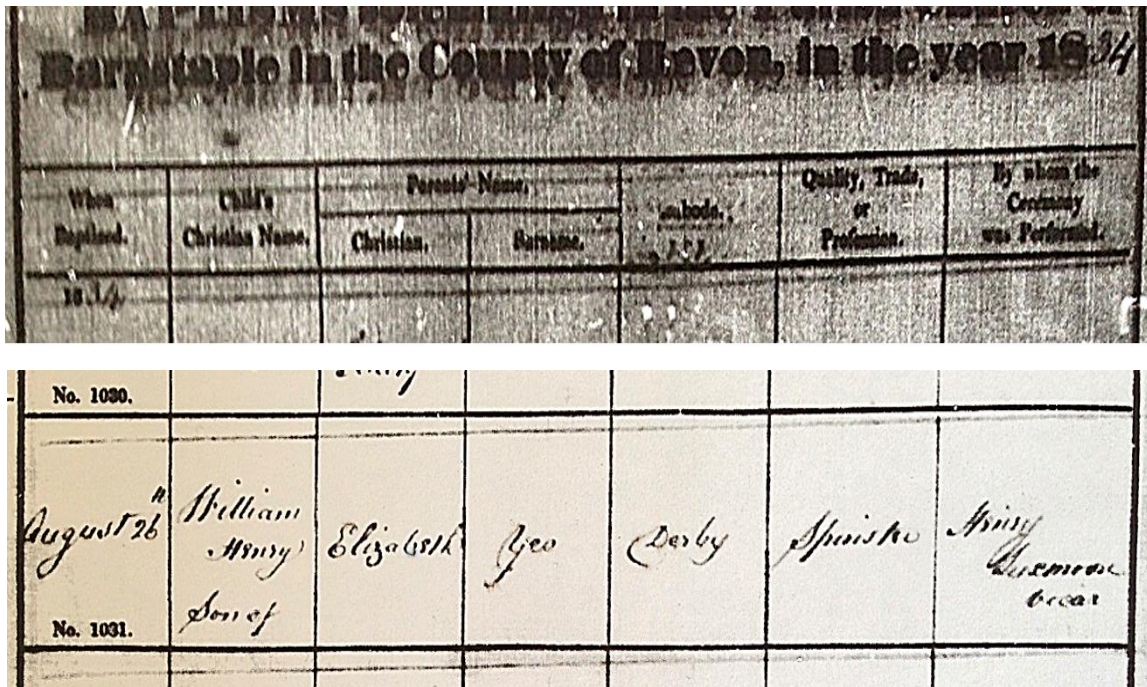 Barnstaple in the County of Devon, in the year 1834
When
Baptized.
Child's
Christian Name.
Parents' Name.
Christian.
Surname.
Abode.
Quality, Trade,
or
Profession.
By whom the
Ceremony
was Performed.
1834
No. 1030.
August 26th
William
Henry
Son of
Elizabeth
Yeo
Derby
Spinster
Henry
Luxmoore
Vicar
No. 1031.